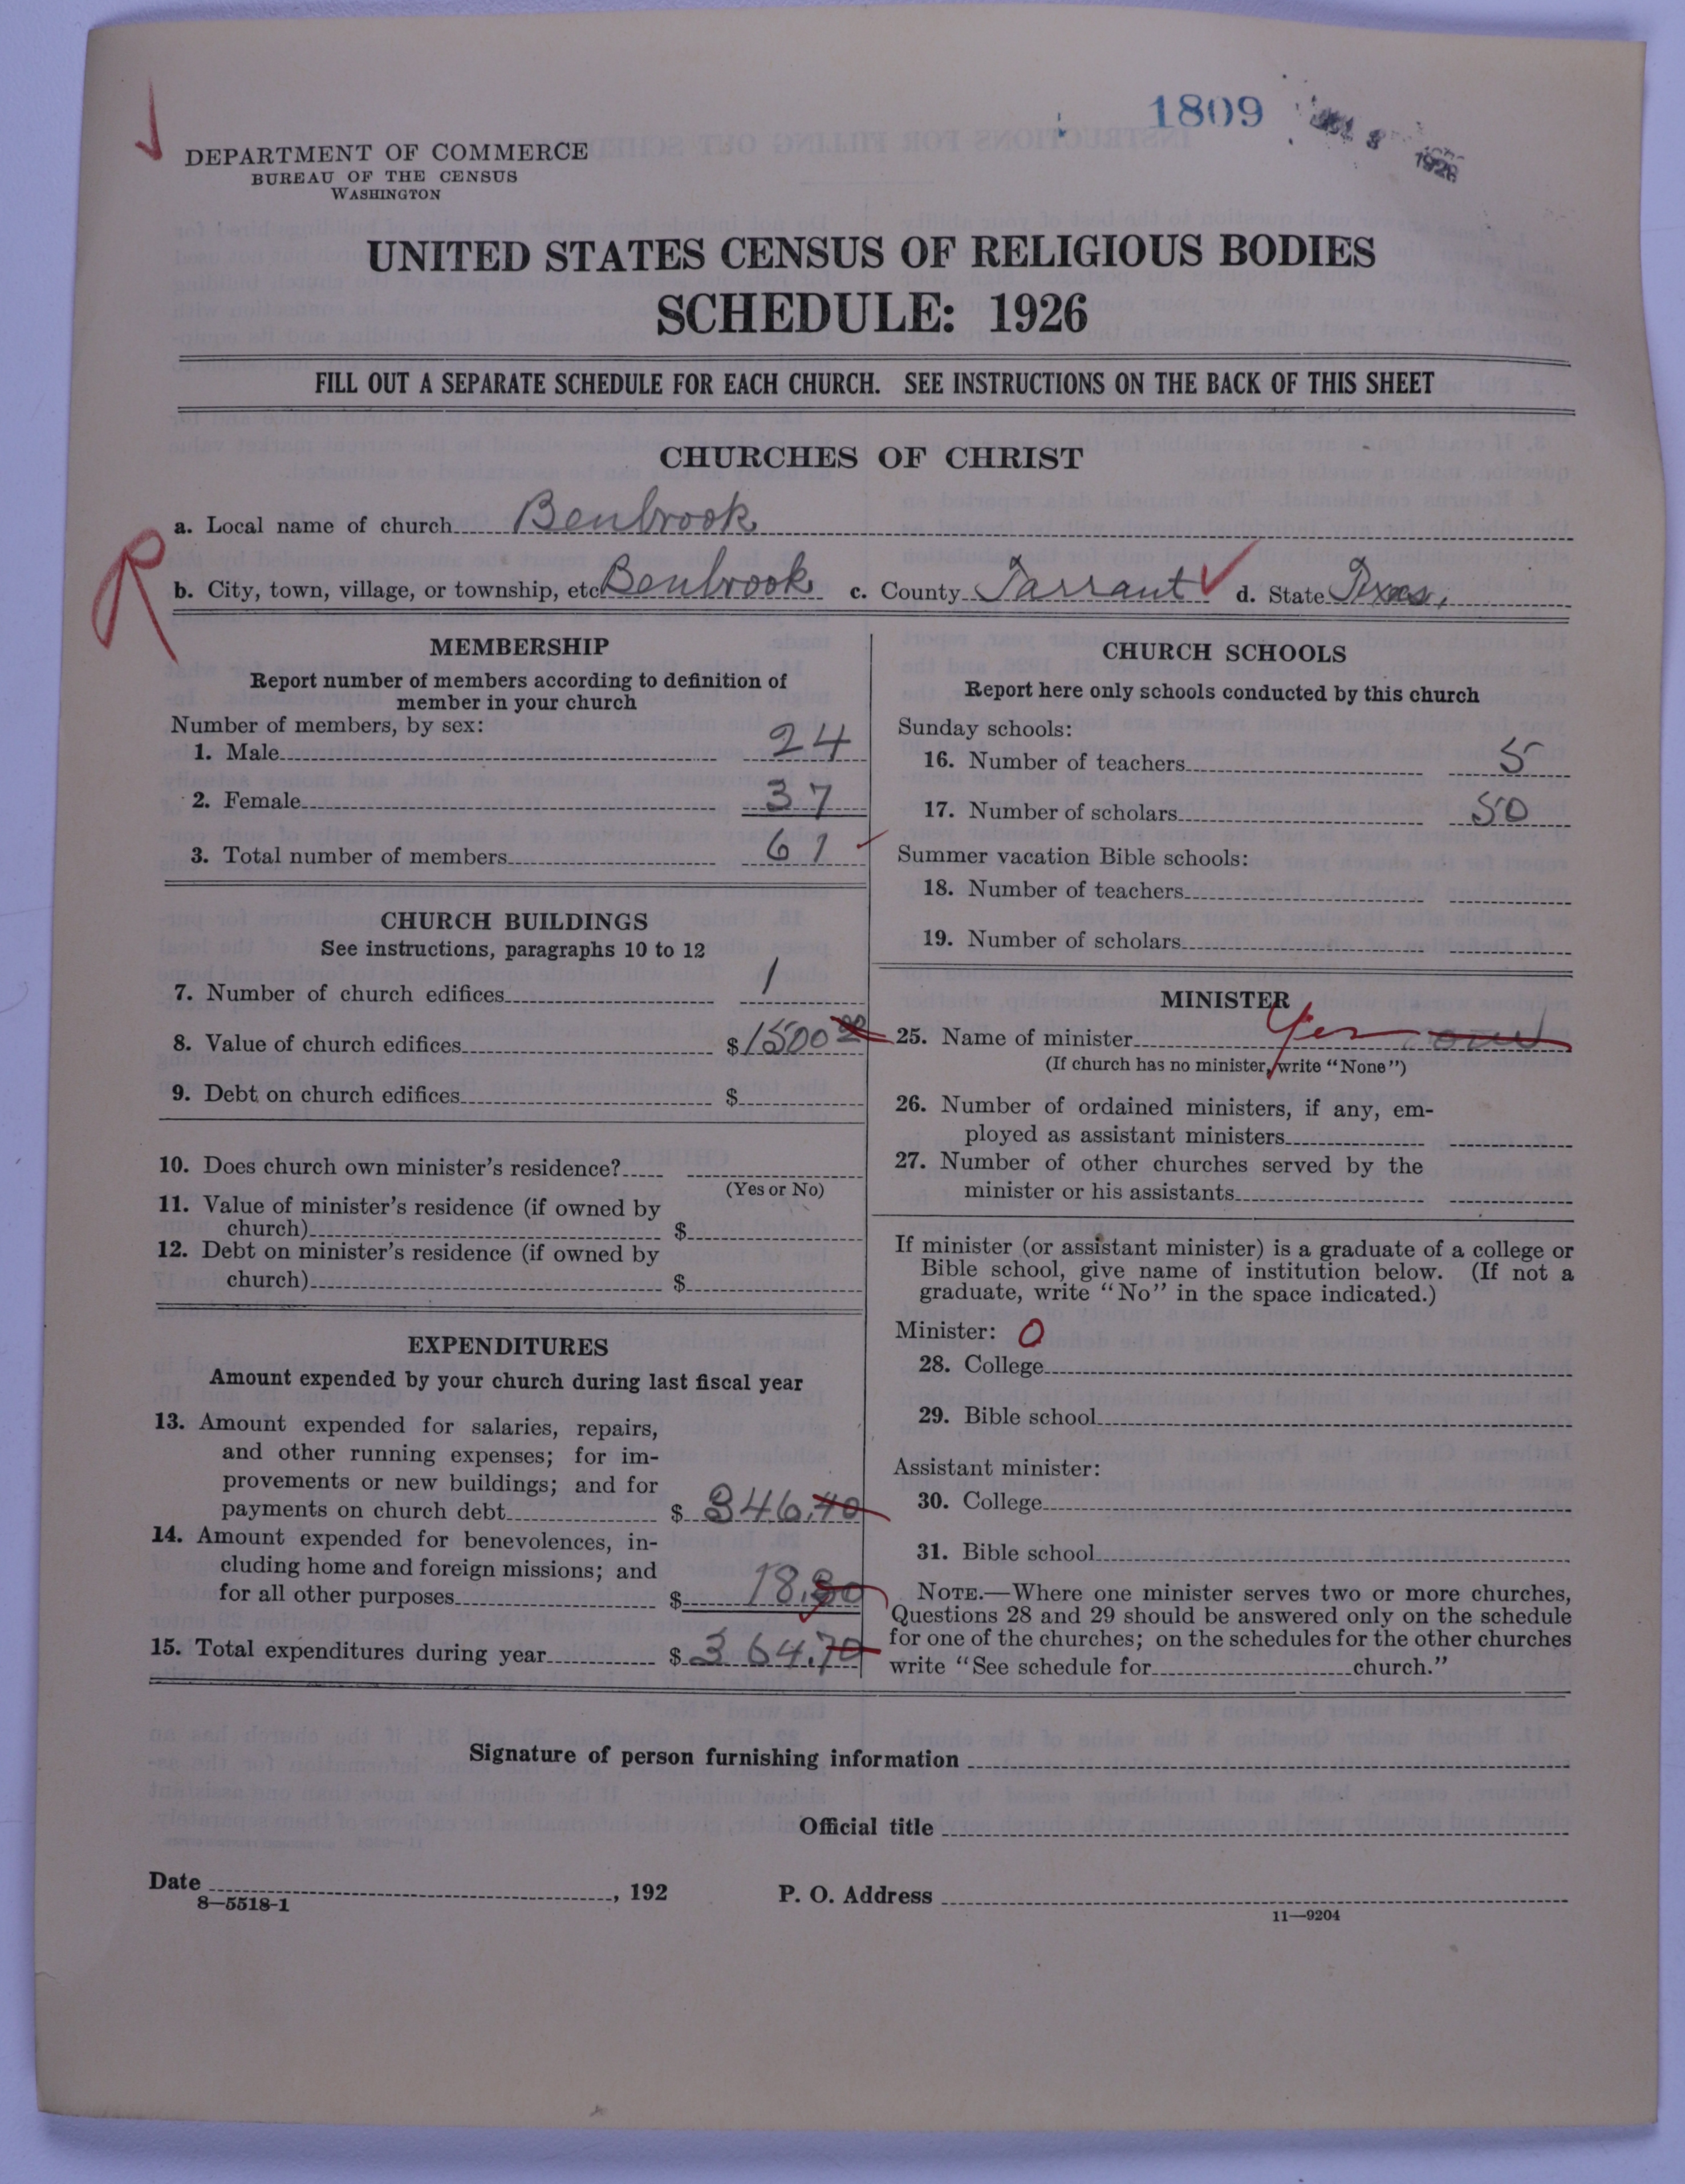 1809
1926
DEPARTMENT OF COMMERCE
BUREAU OF THE CENSUS
WASHINGTON
UNITED STATES CENSUS OF RELIGIOUS BODIES
SCHEDULE: 1926
FILL OUT A SEPARATE SCHEDULE FOR EACH CHURCH. SEE INSTRUCTIONS ON THE BACK OF THIS SHEET
CHURCHES OF CHRIST
a. Local name of church Benbrook
R
b. City, town, village, or township, etc Benbrook c. County Tarrant d. State Texas.
MEMBERSHIP
Report number of members according to definition of
member in your church
Number of members, by sex:
1. Male 24
2. Female 37
3. Total number of members 61
CHURCH BUILDINGS
See instructions, paragraphs 10 to 12
7. Number of church edifices 1
8. Value of church edifices $1500 00
9. Debt on church edifices $
10. Does church own minister's residence?
(Yes or No)
11. Value of minister's residence (if owned by
church) $
12. Debt on minister's residence (if owned by
church) $
EXPENDITURES
Amount expended by your church during last fiscal year
13. Amount expended for salaries, repairs,
and other running expenses; for im-
provements or new buildings; and for
payments on church debt $ 346.40
14. Amount expended for benevolences, in-
cluding home and foreign missions; and
for all other purposes $ 18.30
15. Total expenditures during year $ 364.70
CHURCH SCHOOLS
Report here only schools conducted by this church
Sunday schools:
16. Number of teachers 5
17. Number of scholars 50
Summer vacation Bible schools:
18. Number of teachers
19. Number of scholars
MINISTER
25. Name of minister Yes
(If church has no minister, write "None")
26. Number of ordained ministers, if any, em-
ployed as assistant ministers
27. Number of other churches served by the
minister or his assistants
If minister (or assistant minister) is a graduate of a college or
Bible school, give name of institution below. (If not a
graduate, write "No" in the space indicated.)
Minister: 0
28. College
29. Bible school
Assistant minister:
30. College
31. Bible school
NOTE.—Where one minister serves two or more churches,
Questions 28 and 29 should be answered only on the schedule
for one of the churches; on the schedules for the other churches
write "See schedule for church."
Signature of person furnishing information
Official title
Date , 192
8—5518-1
P. O. Address
11—9204